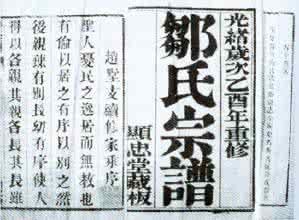 光緒歲次乙酉年重修
鄒氏宗譜
顯忠堂藏板
趙墅支續修家乘序
聖人憂民之逸居而無教也
有倫以居之有序以別之然
後親踈有別長幼有序使人
得以各親其親各長其長雖